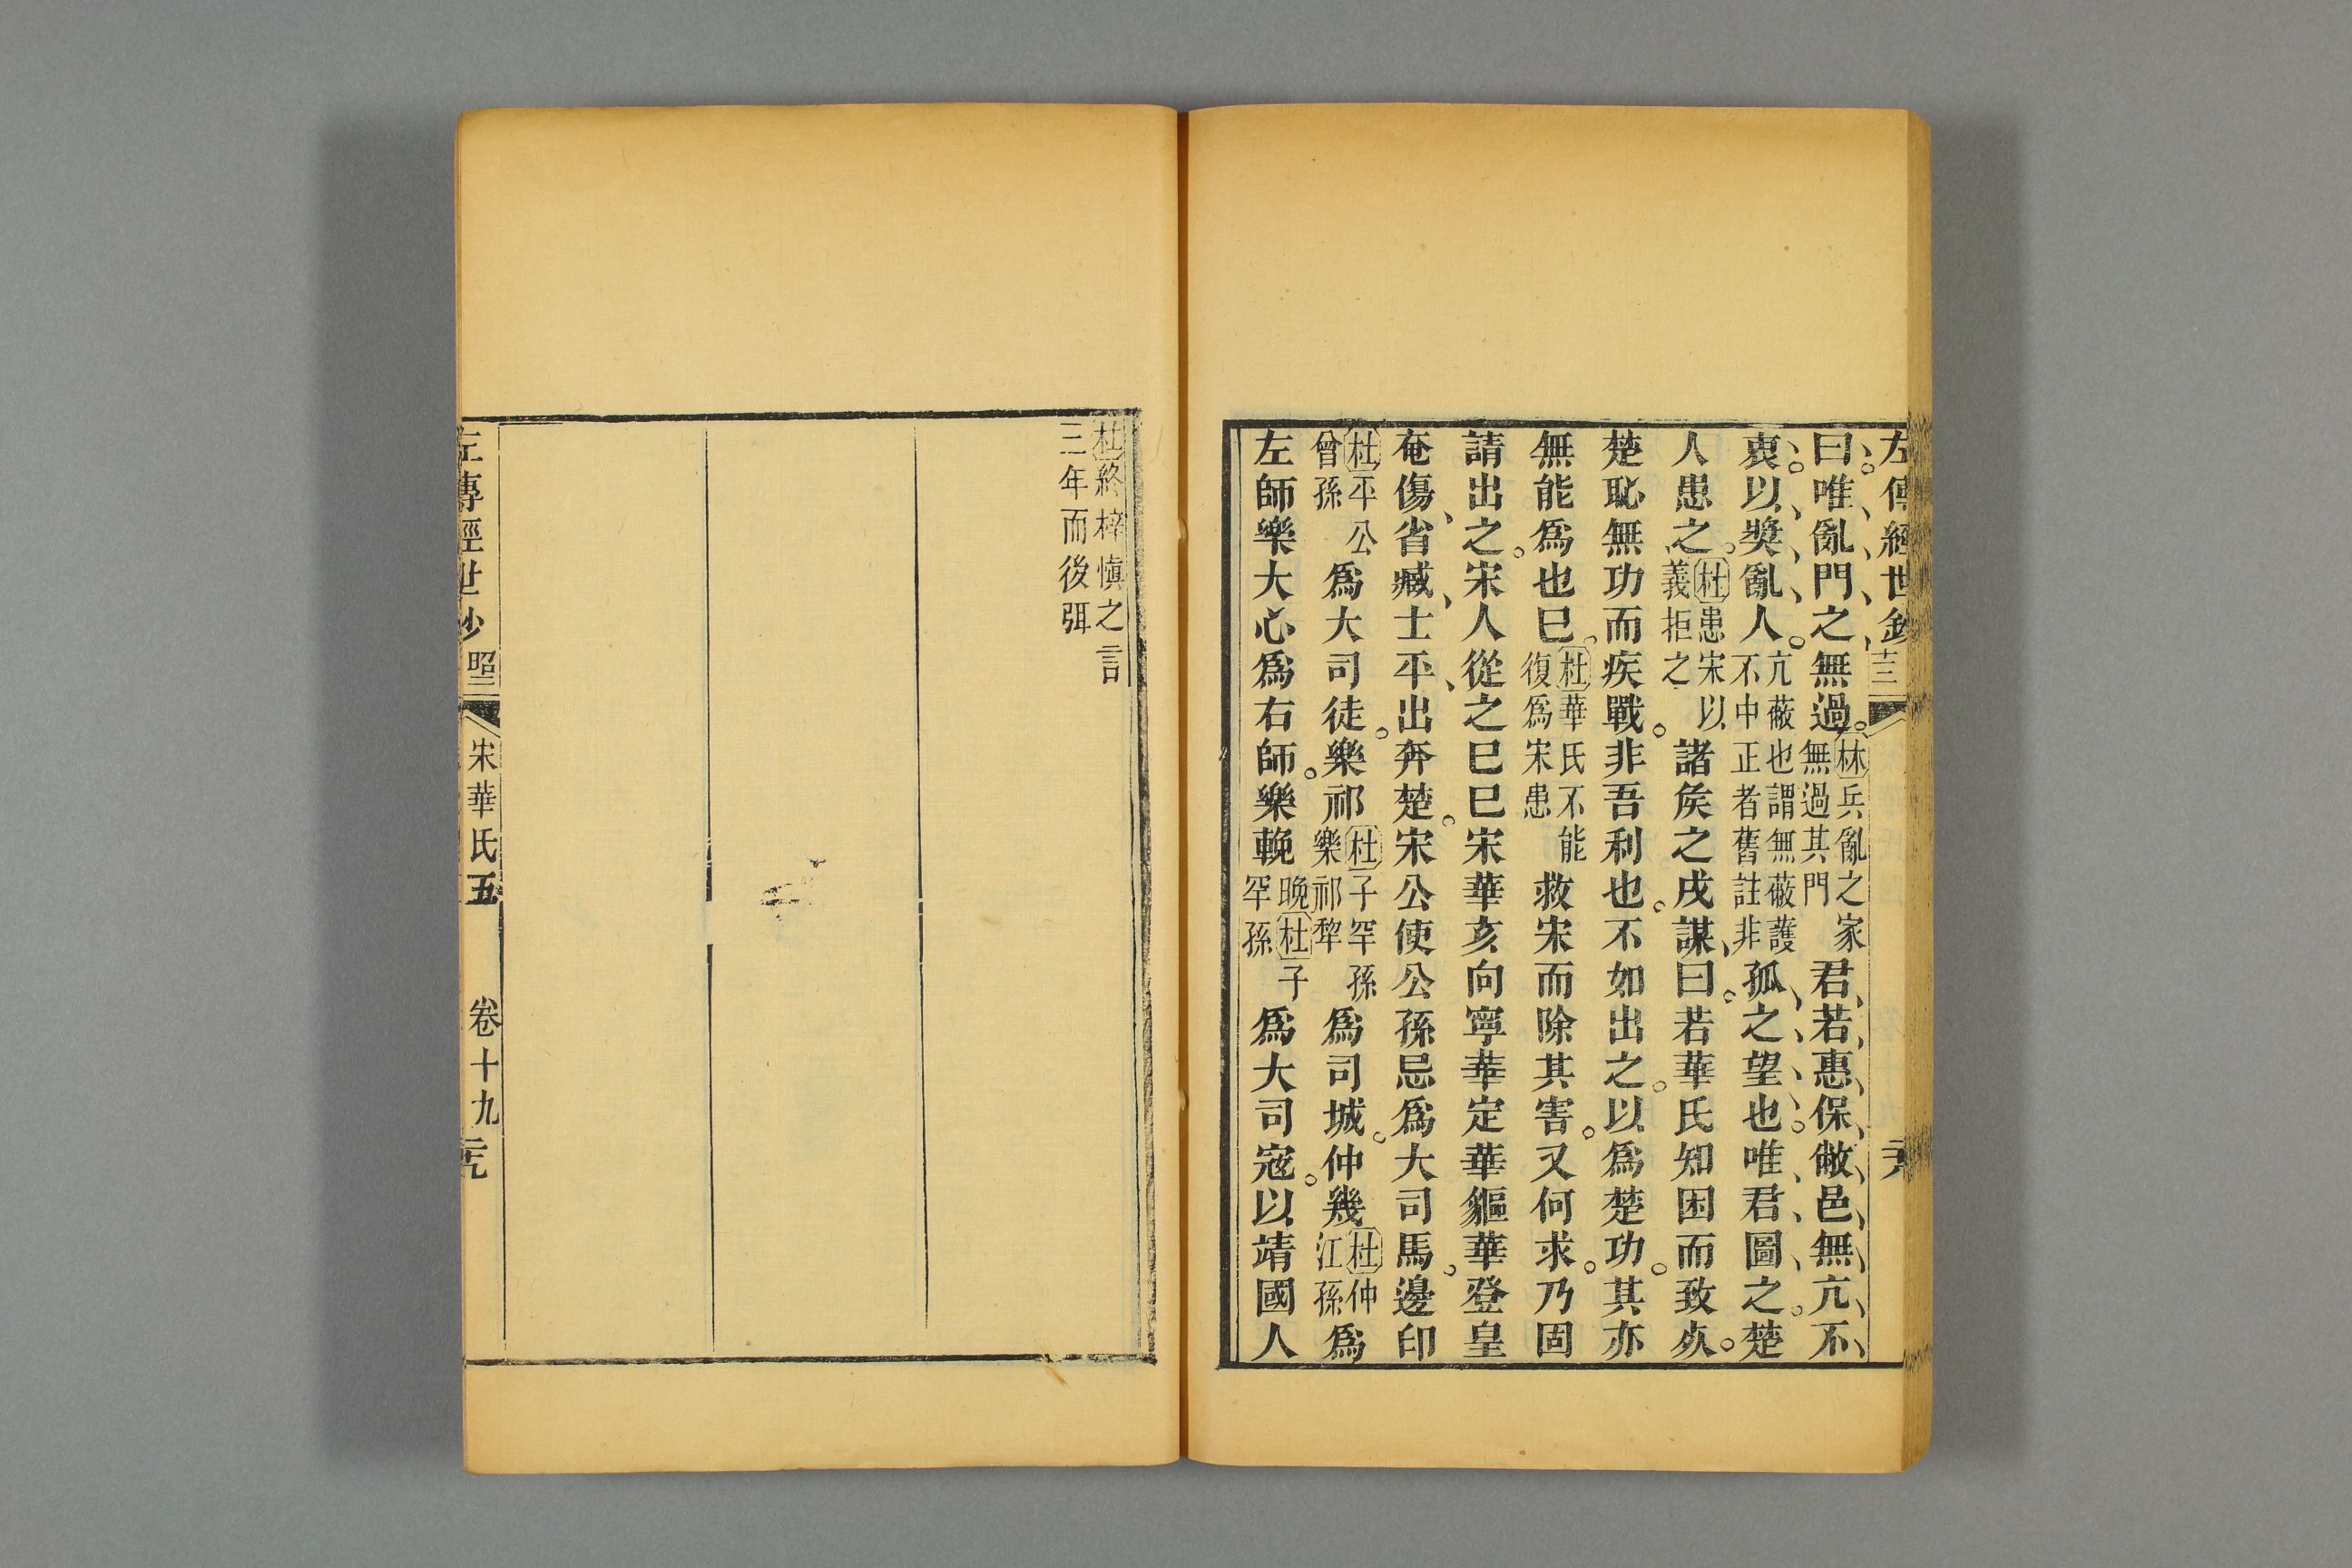 左傳經世鈔
曰唯亂門之無過林兵亂之家無過其門君若惠保敝邑無亢不
衷以獎亂人亢蔽也謂無蔽護不中正者舊註非孤之望也唯君圖之楚
人患之杜患宋以義拒之諸矦之戍謀曰若華氏知困而致死
楚恥無功而疾戰非吾利也不如出之以爲楚功其亦
無能爲也巳杜華氏不能復爲宋患救宋而除其害又何求乃固
請出之宋人從之巳巳宋華亥向寧華定華貙華登皇
奄傷省臧士平出奔楚宋公使公孫忌爲大司馬邊卬
杜平公曾孫爲大司徒樂祁杜子罕孫樂祁犂爲司城仲幾杜仲江孫爲
左師樂大心爲右師樂輓晚杜子罕孫爲大司寇以靖國人
杜終梓慎之言三年而後弭
左傳經世鈔 宋華氏五 卷十九